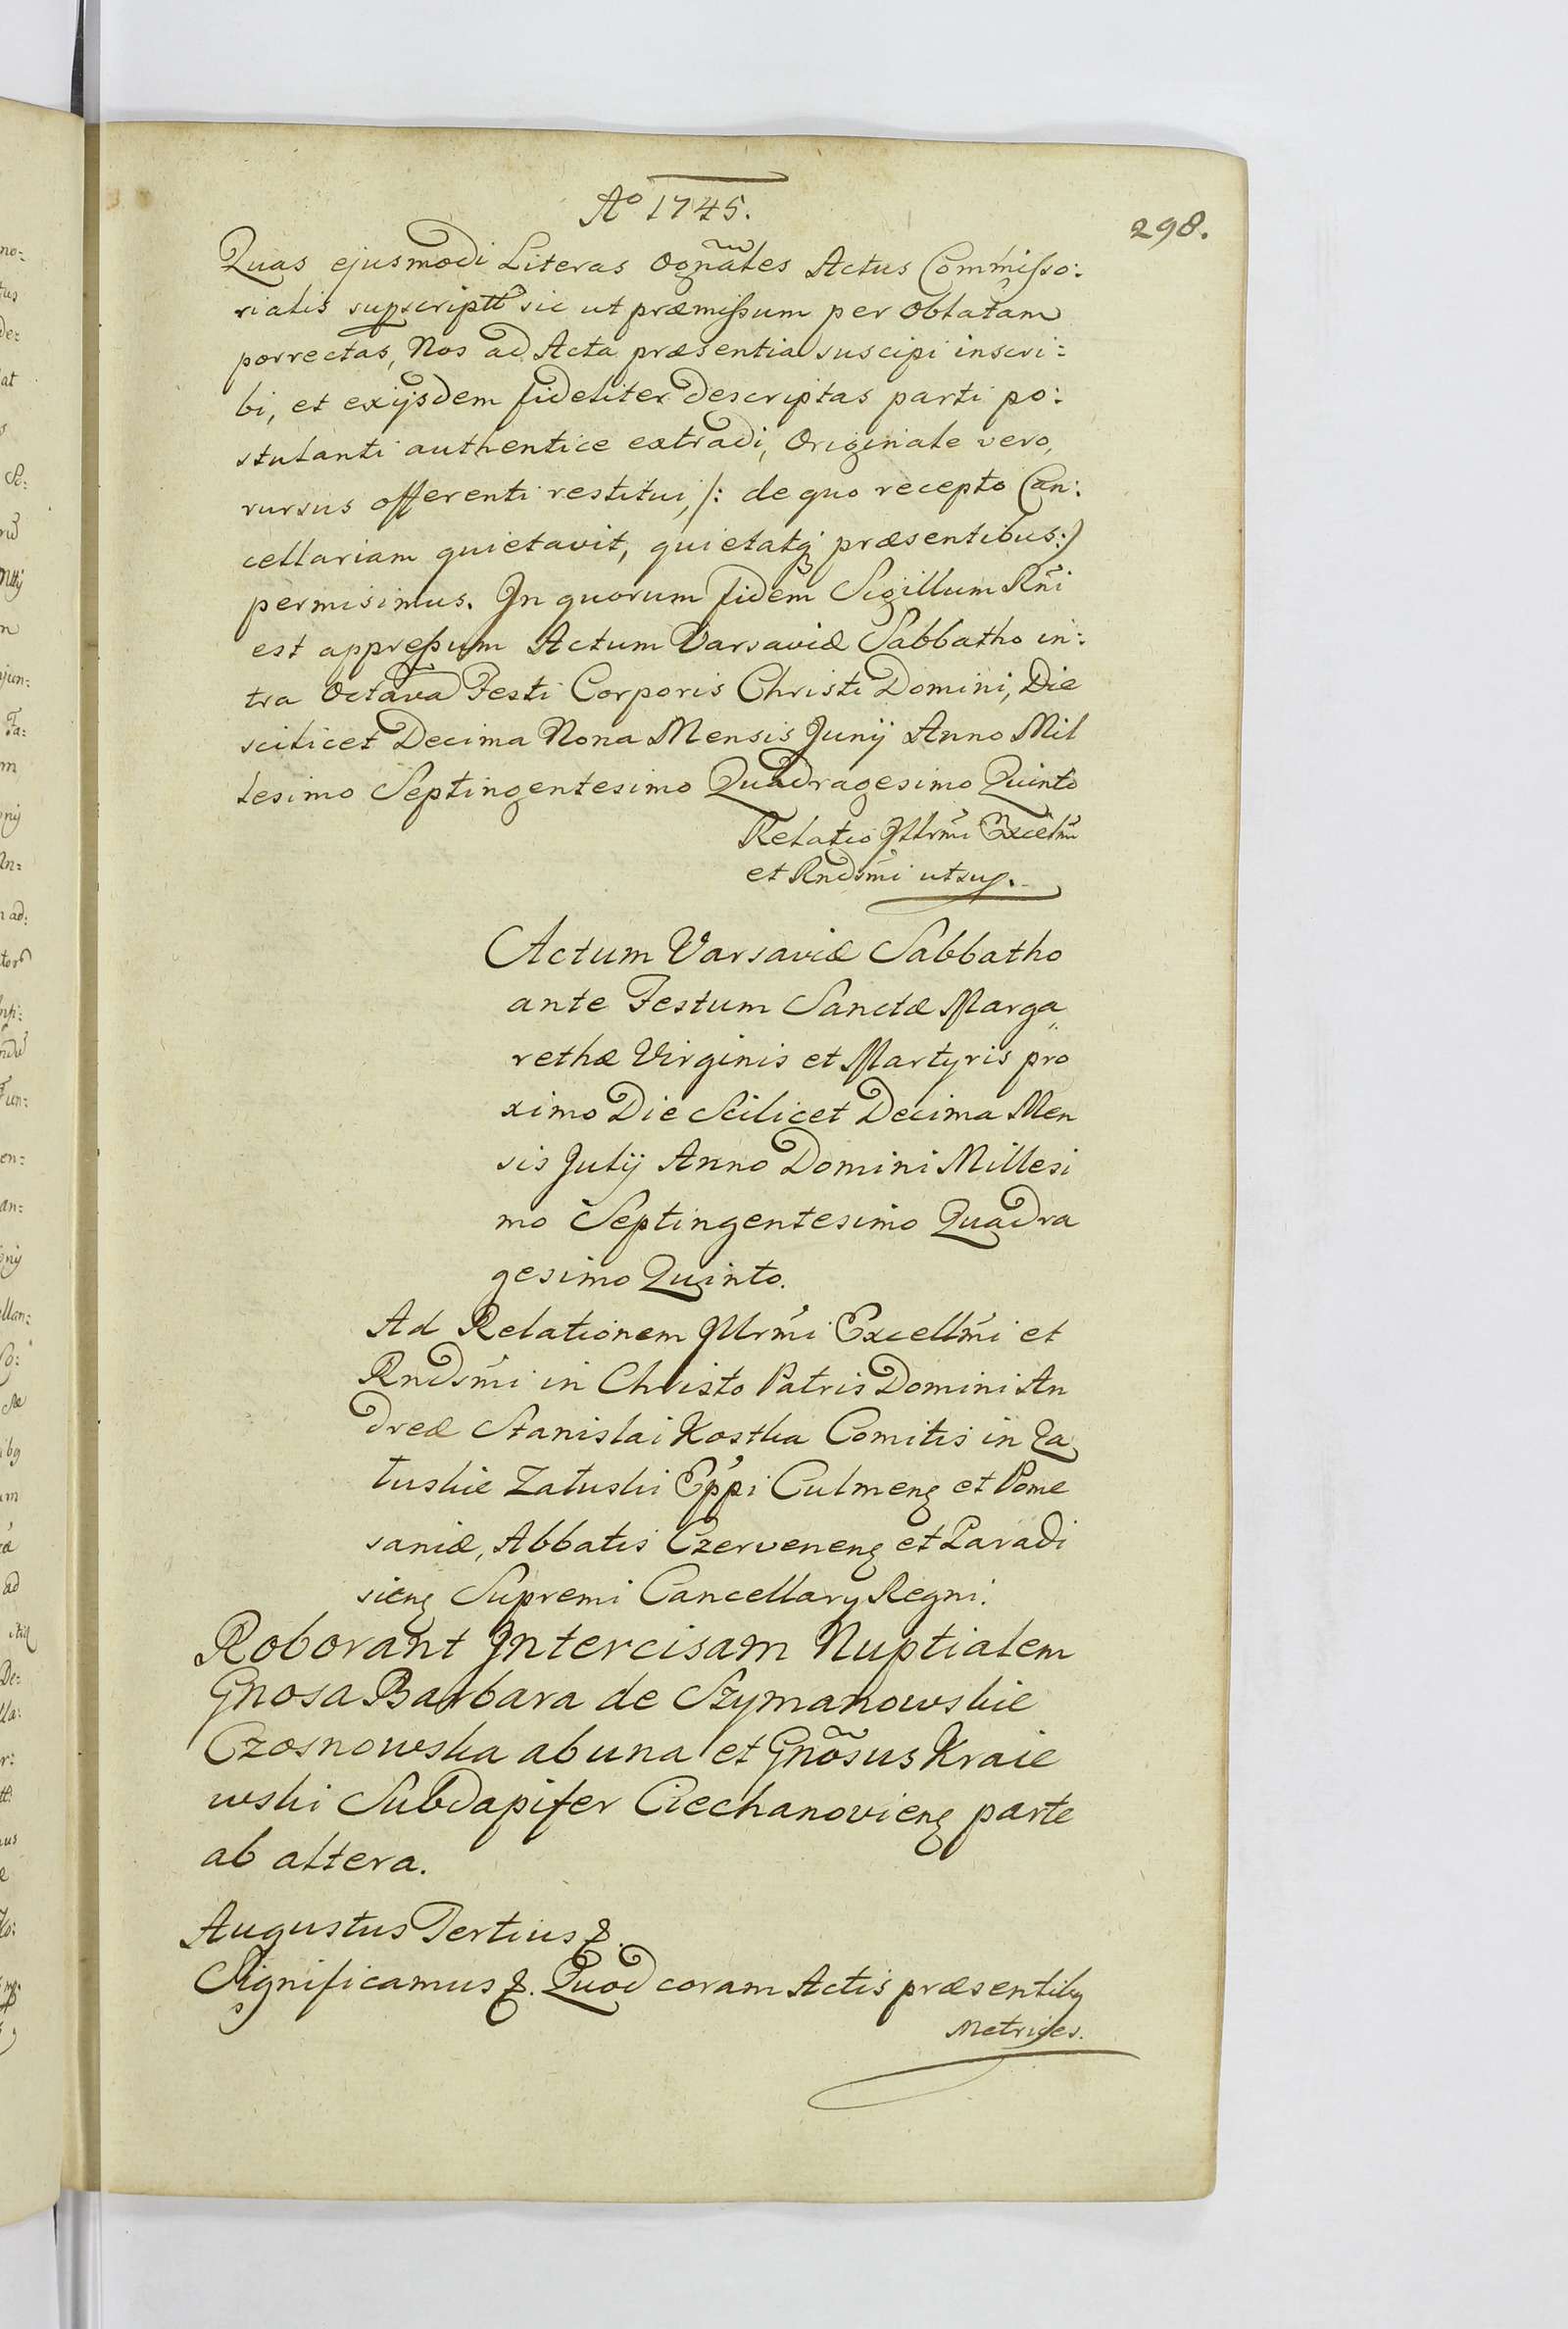 Aº 1745.
298.
Quas ejusmodi Literas Ognãles Actus Commisso:
rialis supscriptt sic ut præmissum per Oblatam
porrectas, Nos ad Acta præsentia suscipi inscri:
bi, et exijsdem fideliter descriptas parti po:
stulanti authentice extradi, Originale vero,
rursus offerenti restitui, /: de quo recepto Can:
cellariam quietavit, quietatq præsentibus :/
permisimus. In quorum fidem Sigillum Rñi
est appressum Actum Varsaviæ Sabbatho in:
tra Octava Festi Corporis Christi Domini, Die
scilicet Decima Nona Mensis Junij Anno Mil
lesimo Septingentesimo Quadragesimo Quinto
Relatio Jllrmi Excelmi
et Rndsmi ut sup.
Actum Varsaviæ Sabbatho
ante Festum Sanctæ Marga„
rethæ Virginis et Martyris pro
ximo Die Scilicet Decima Men
sis Julij Anno Domini Millesi
mo Septingentesimo Quadra
gesimo Quinto.
Ad Relationem Jllrmi Excellmi et
Rndsmi in Christo Patris Domini An
dreæ Stanislai Kostka Comitis in Za
luskie Zaluski Eppi Culmenẜ et Pome
saniæ, Abbatis Czervenenẜ et Paradi
sienẜ Supremi Cancellary Regni.
Roborant Intercisam Nuptialem
Gnosa Barbara de Szymanowskie
Czosnowska ab una et Gnõsus Kraie
wski Subdapifer Ciechanovienẜ parte
ab altera.
Augustus Tertius &.
Significamus &. Quod coram Actis præsentibq
Metrices.